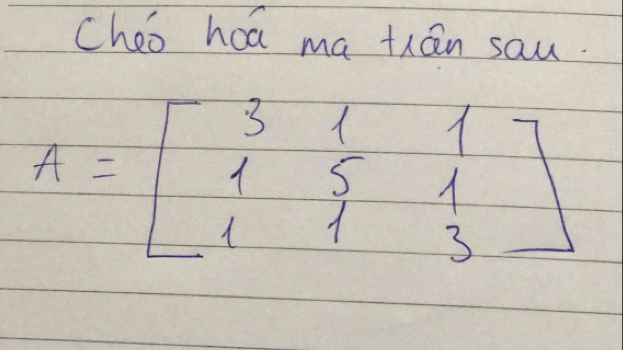 Chéo hoá ma trận sau.
A = [ 3 1 1
1 5 1
1 1 3 ]